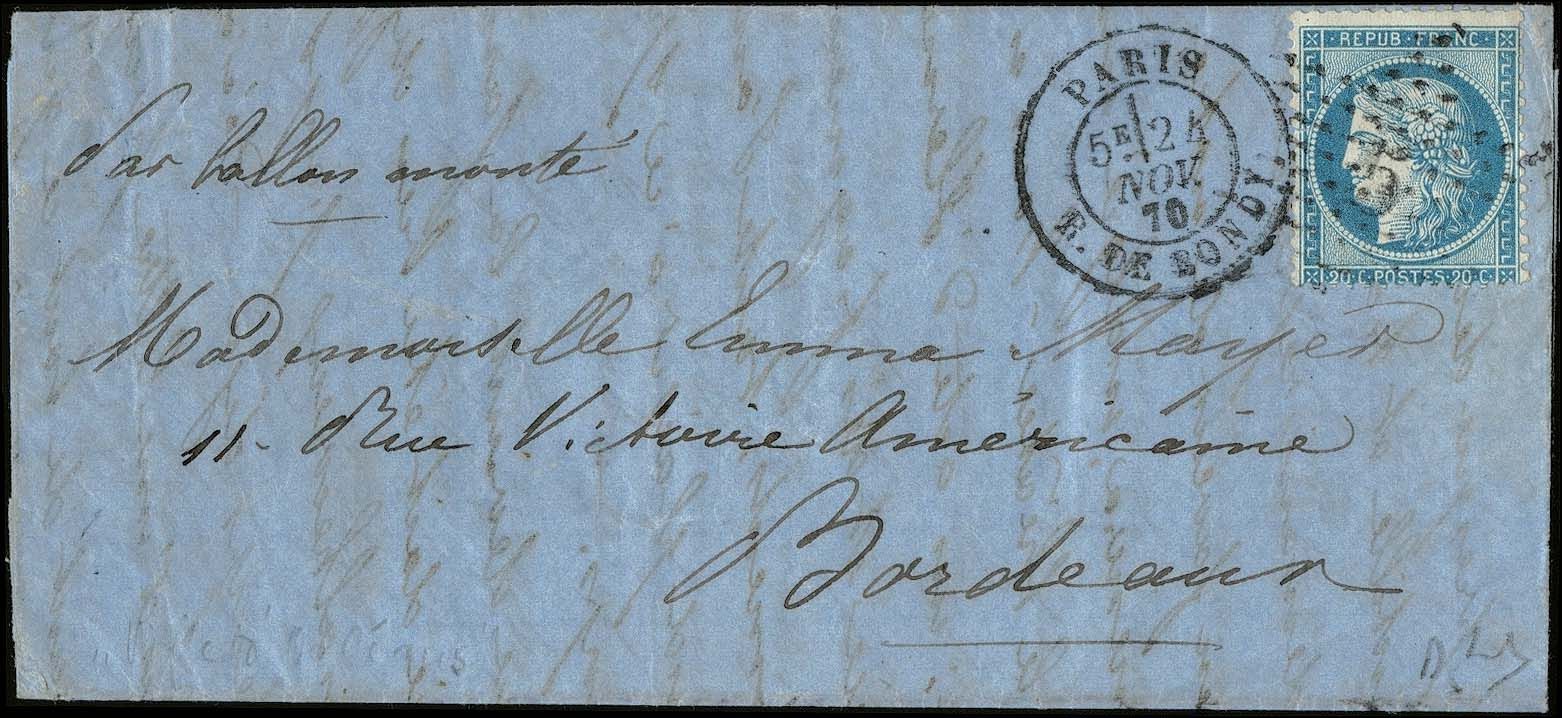 REPUB FRANC
20 C. POSTES 20 C
PARIS
5E 24
NOV.
70
R. DE BONDY
Par ballon monté
Mademoiselle Emma Mayer
11. Rue Victoire Américaine
Bordeaux